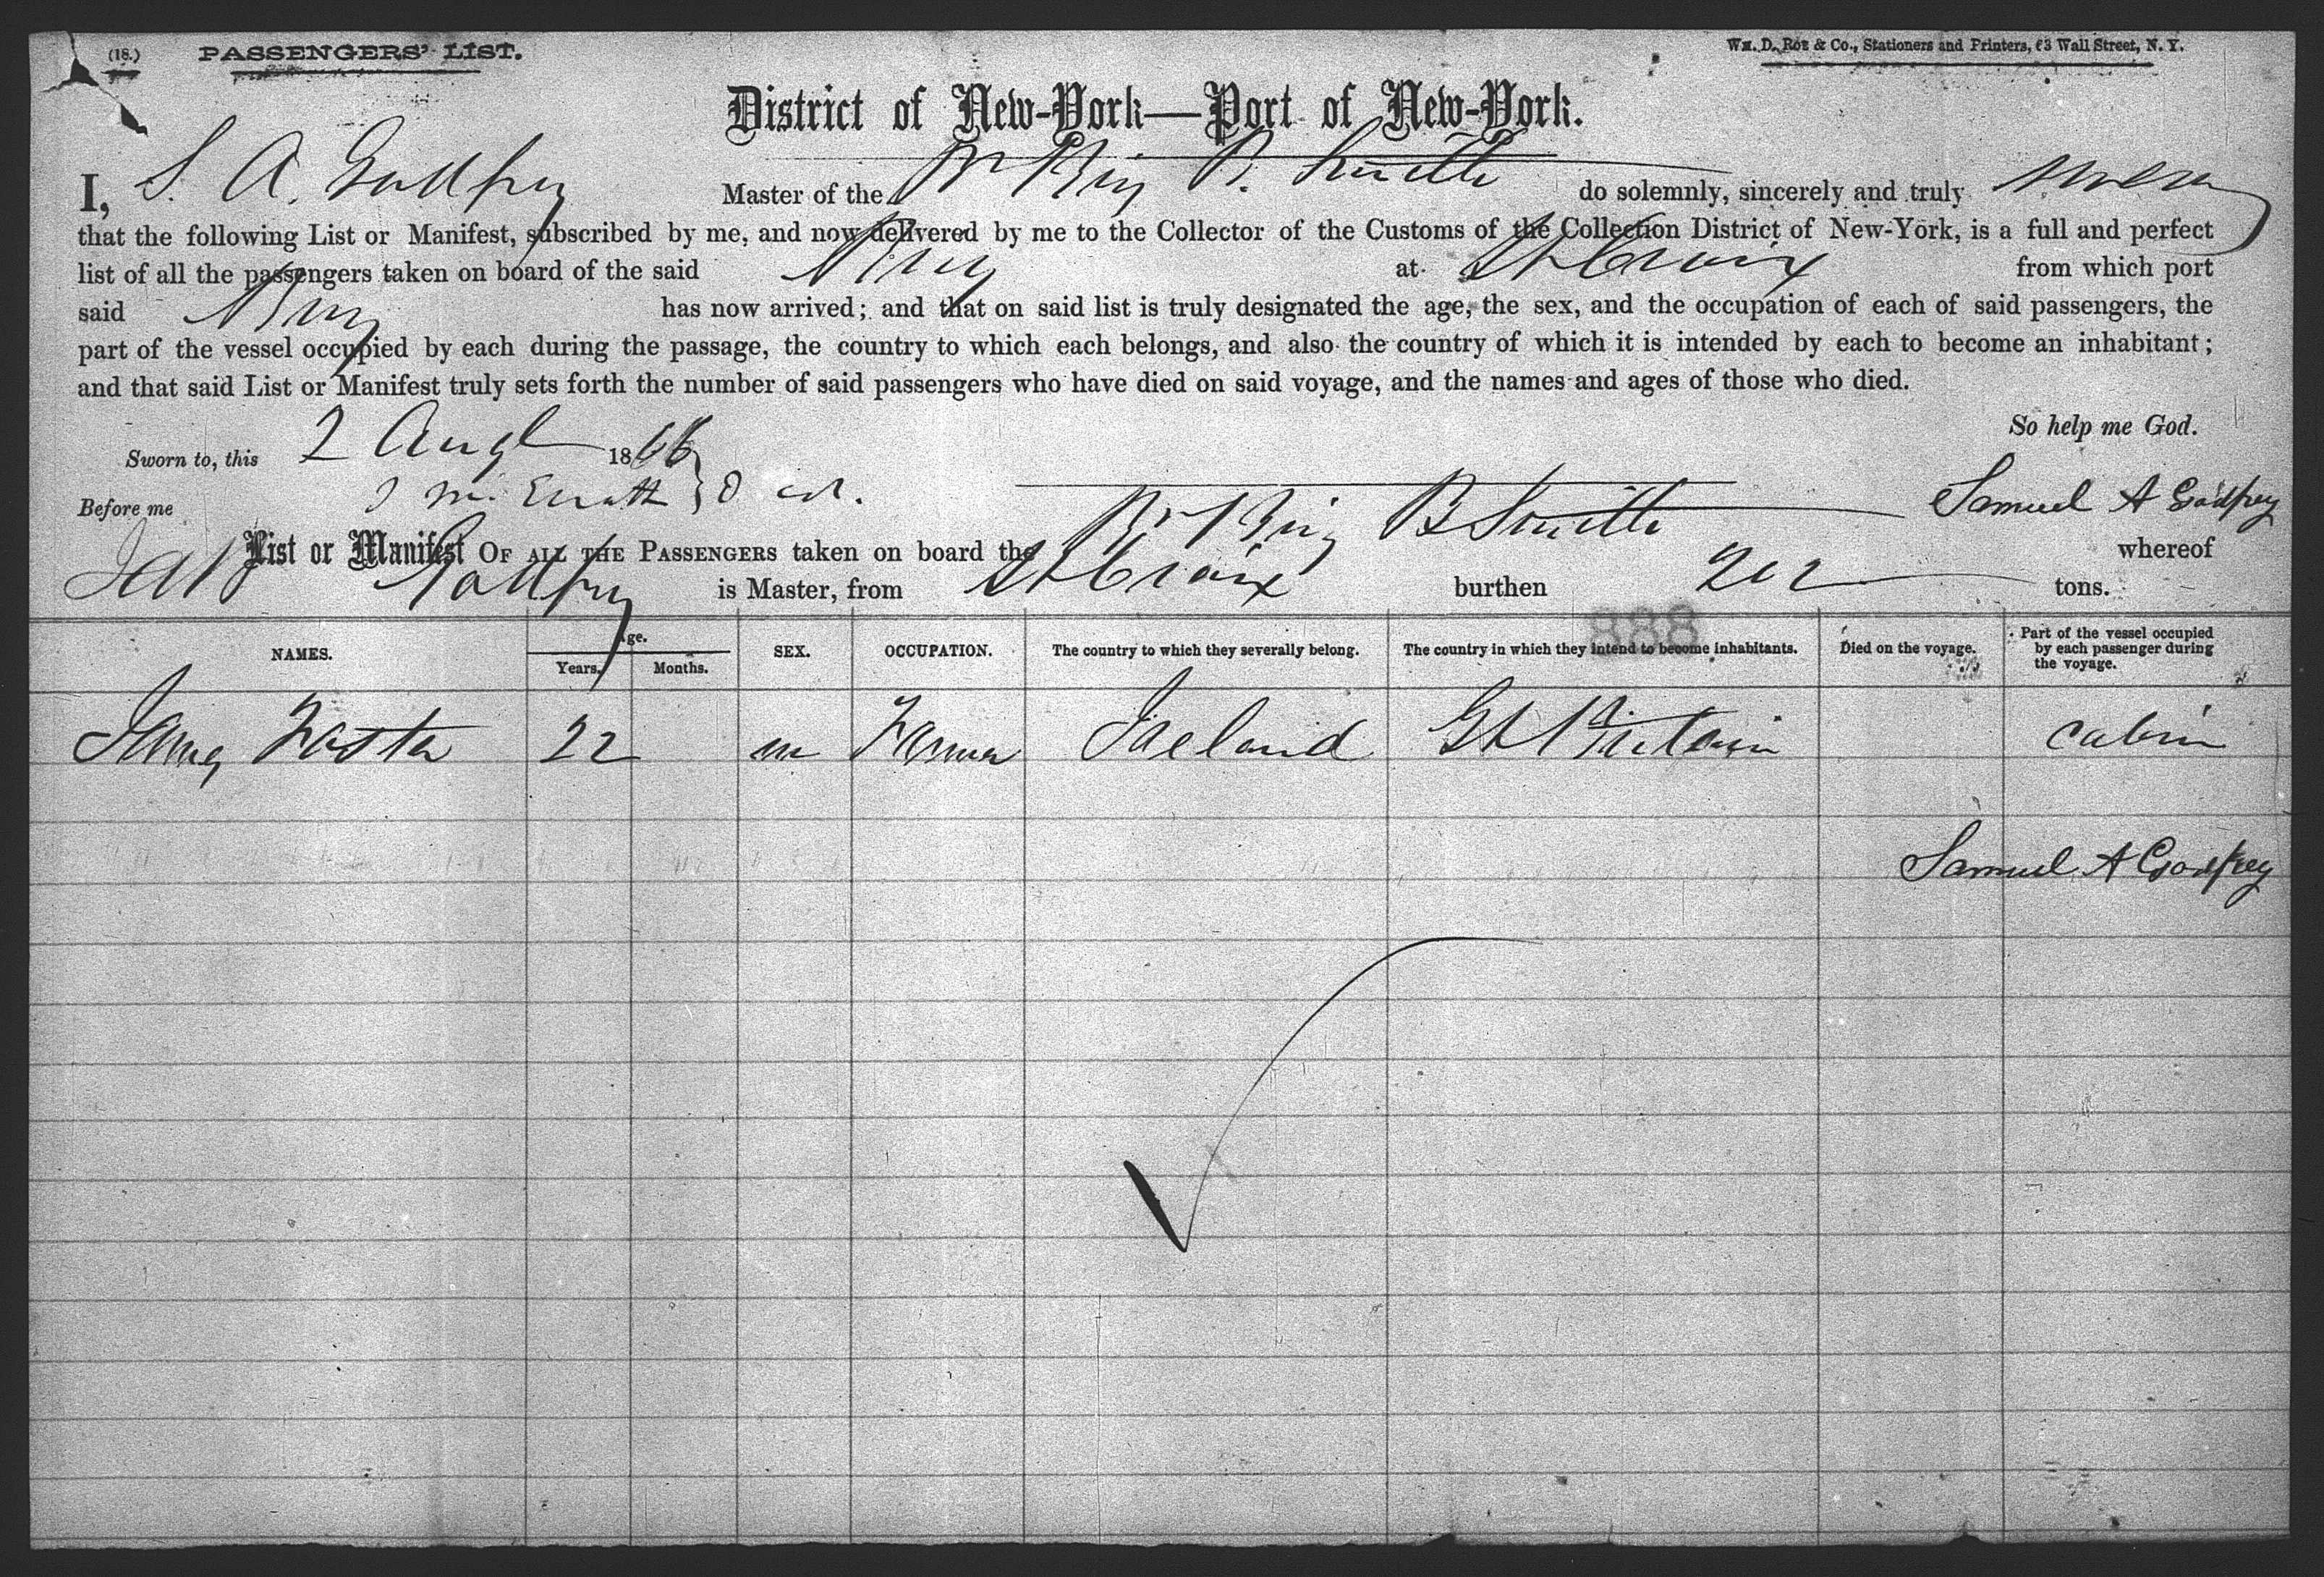 (18.) PASSENGERS' LIST. Wm. D. Roe & Co., Stationers and Printers, 63 Wall Street, N. Y.
District of New-York—Port of New-York.
I, S. A. Godfrey Master of the Br Brig B. Smith do solemnly, sincerely and truly swear
that the following List or Manifest, subscribed by me, and now delivered by me to the Collector of the Customs of the Collection District of New-York, is a full and perfect
list of all the passengers taken on board of the said Brig at St Croix from which port
said Brig has now arrived; and that on said list is truly designated the age, the sex, and the occupation of each of said passengers, the
part of the vessel occupied by each during the passage, the country to which each belongs, and also the country of which it is intended by each to become an inhabitant;
and that said List or Manifest truly sets forth the number of said passengers who have died on said voyage, and the names and ages of those who died.
So help me God.
Sworn to, this 2 Augt 1866
Before me Samuel A Godfrey
List or Manifest OF ALL THE PASSENGERS taken on board the Br Brig B Smith whereof
Godfrey is Master, from St Croix burthen 202 tons.
888
NAMES. Age. Years. Months. SEX. OCCUPATION. The country to which they severally belong. The country in which they intend to become inhabitants. Died on the voyage. Part of the vessel occupied by each passenger during the voyage.
James 22 m Farmer Ireland Gt Britain cabin
Samuel A Godfrey